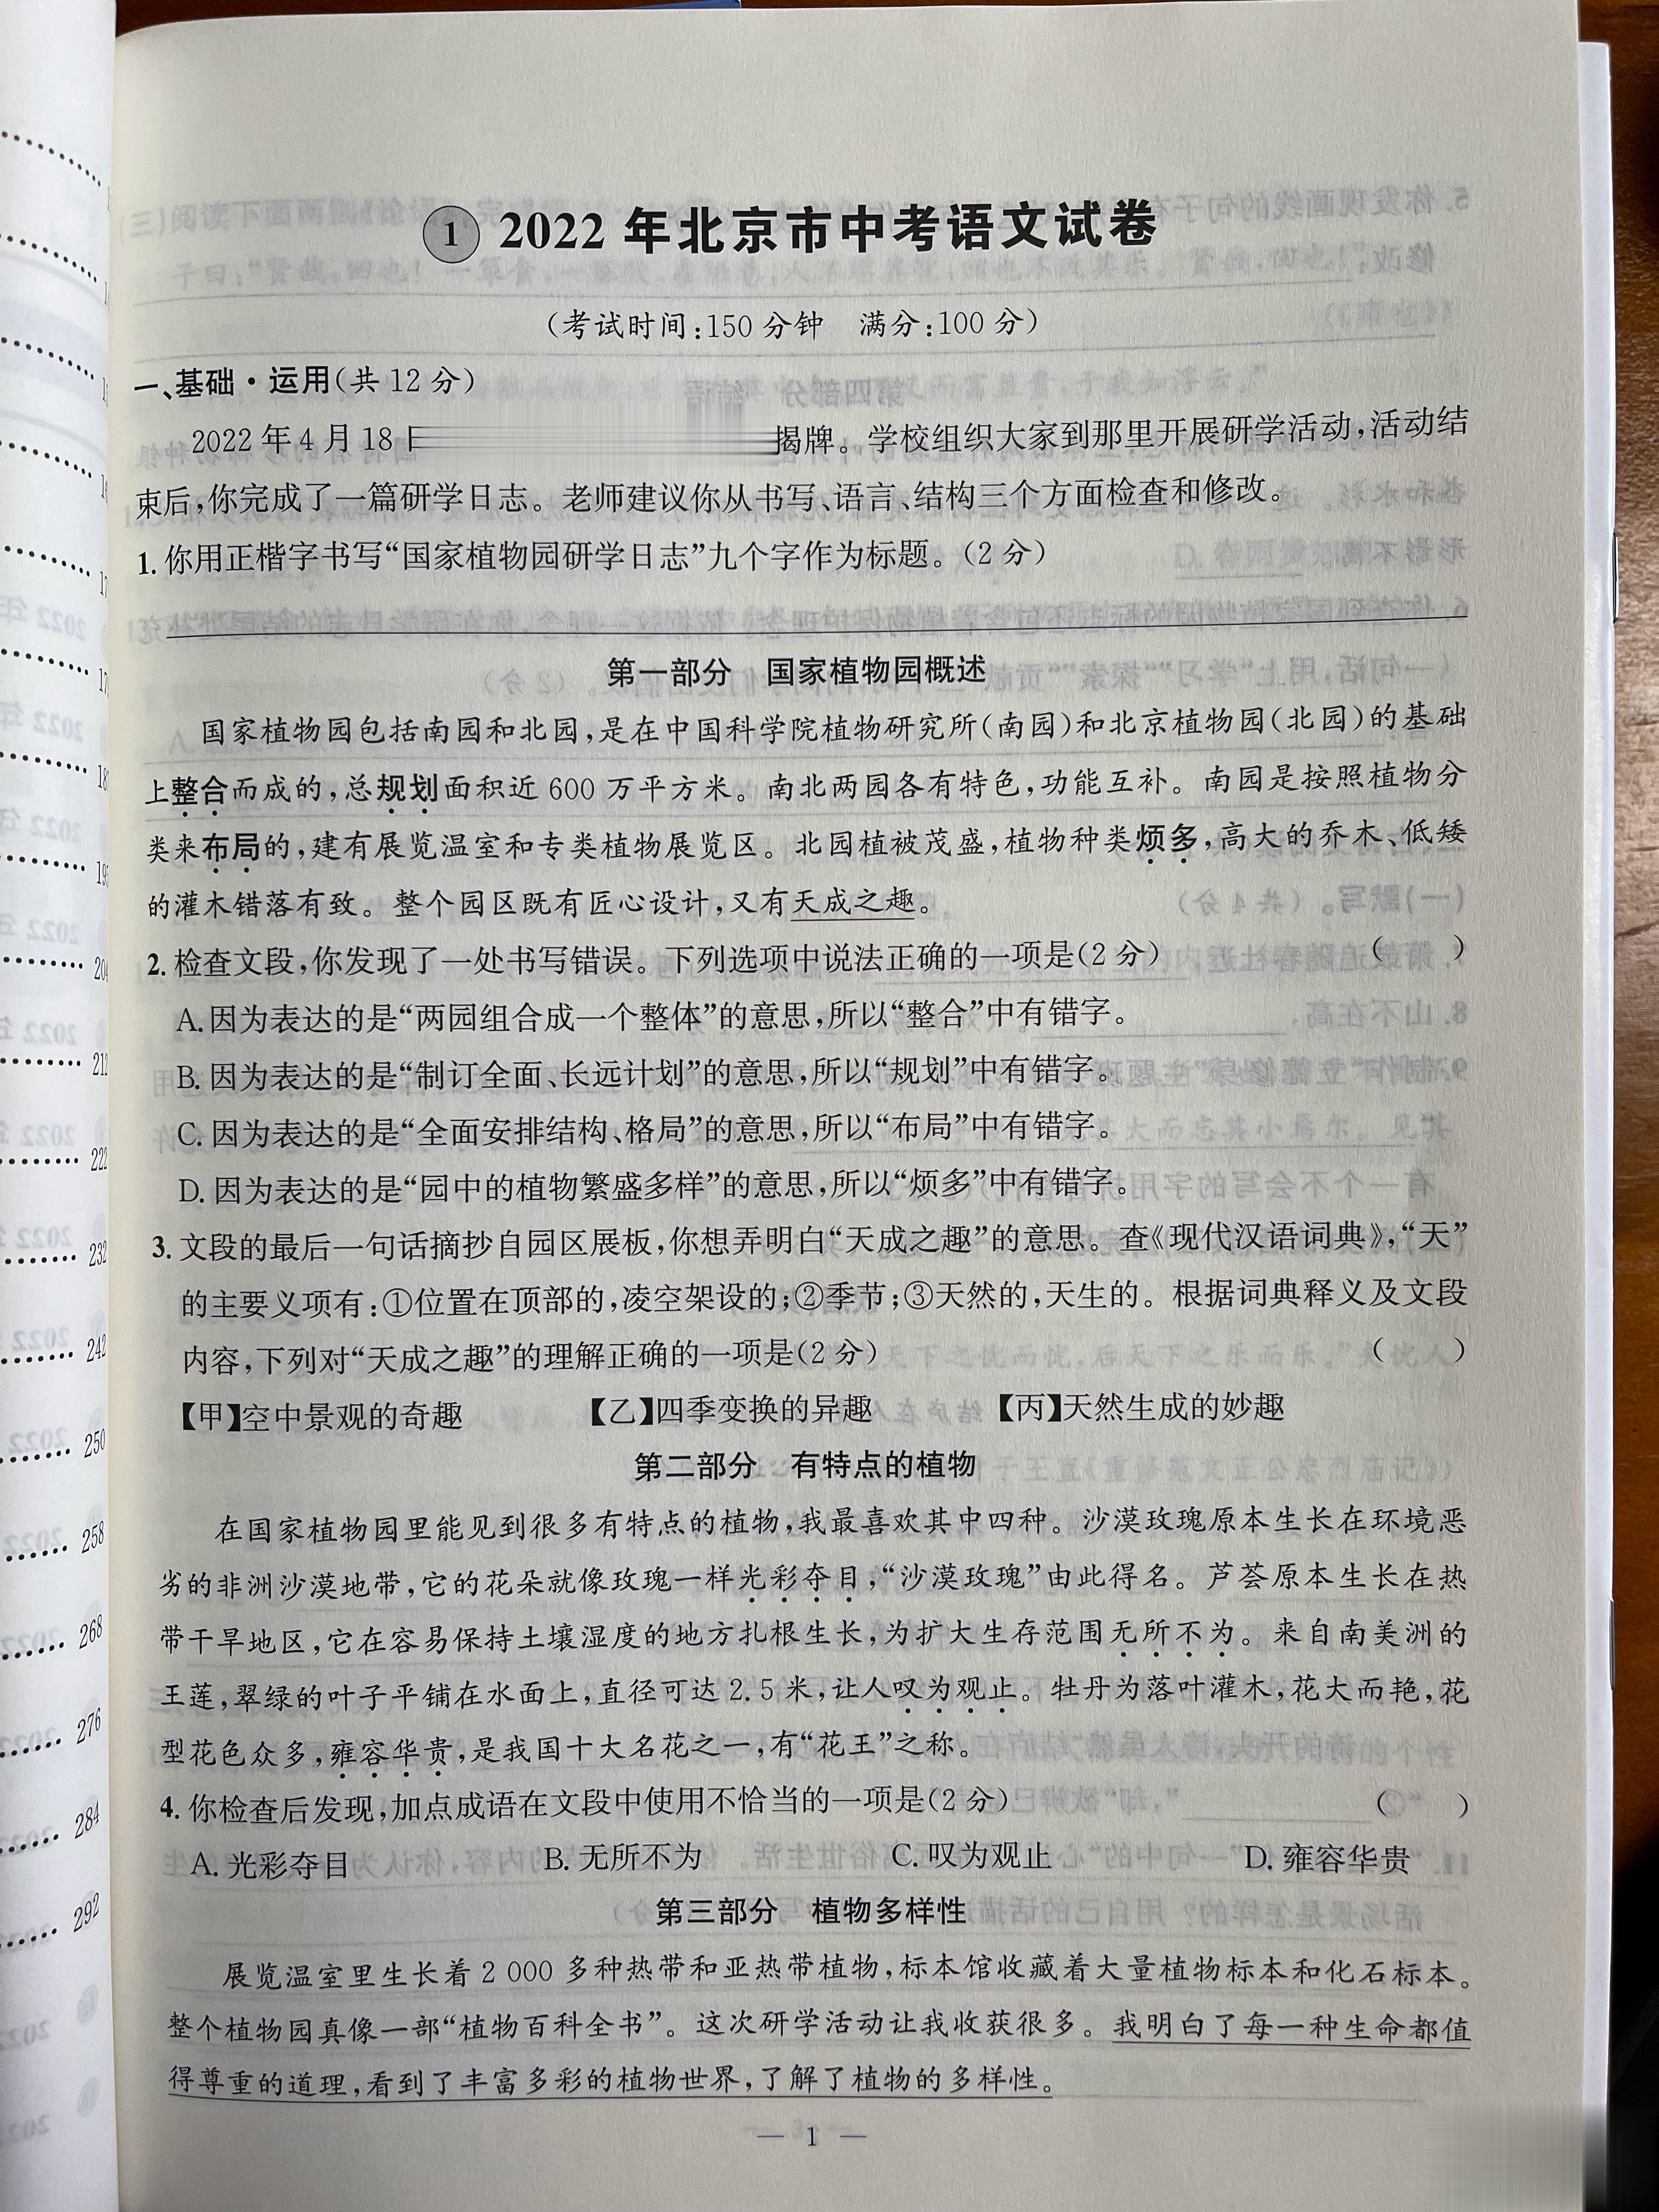 ① 2022年北京市中考语文试卷
(考试时间:150分钟 满分:100分)
一、基础·运用(共12分)
2022年4月18日 揭牌。学校组织大家到那里开展研学活动,活动结
束后,你完成了一篇研学日志。老师建议你从书写、语言、结构三个方面检查和修改。
1. 你用正楷字书写“国家植物园研学日志”九个字作为标题。(2分)
第一部分 国家植物园概述
国家植物园包括南园和北园,是在中国科学院植物研究所(南园)和北京植物园(北园)的基础
上整合而成的,总规划面积近600万平方米。南北两园各有特色,功能互补。南园是按照植物分
类来布局的,建有展览温室和专类植物展览区。北园植被茂盛,植物种类烦多,高大的乔木、低矮
的灌木错落有致。整个园区既有匠心设计,又有天成之趣。
2. 检查文段,你发现了一处书写错误。下列选项中说法正确的一项是(2分) ( )
A. 因为表达的是“两园组合成一个整体”的意思,所以“整合”中有错字。
B. 因为表达的是“制订全面、长远计划”的意思,所以“规划”中有错字。
C. 因为表达的是“全面安排结构、格局”的意思,所以“布局”中有错字。
D. 因为表达的是“园中的植物繁盛多样”的意思,所以“烦多”中有错字。
3. 文段的最后一句话摘抄自园区展板,你想弄明白“天成之趣”的意思。查《现代汉语词典》,“天”
的主要义项有:①位置在顶部的,凌空架设的;②季节;③天然的,天生的。根据词典释义及文段
内容,下列对“天成之趣”的理解正确的一项是(2分) ( )
【甲】空中景观的奇趣 【乙】四季变换的异趣 【丙】天然生成的妙趣
第二部分 有特点的植物
在国家植物园里能见到很多有特点的植物,我最喜欢其中四种。沙漠玫瑰原本生长在环境恶
劣的非洲沙漠地带,它的花朵就像玫瑰一样光彩夺目,“沙漠玫瑰”由此得名。芦荟原本生长在热
带干旱地区,它在容易保持土壤湿度的地方扎根生长,为扩大生存范围无所不为。来自南美洲的
王莲,翠绿的叶子平铺在水面上,直径可达2.5米,让人叹为观止。牡丹为落叶灌木,花大而艳,花
型花色众多,雍容华贵,是我国十大名花之一,有“花王”之称。
4. 你检查后发现,加点成语在文段中使用不恰当的一项是(2分) ( )
A. 光彩夺目 B. 无所不为 C. 叹为观止 D. 雍容华贵
第三部分 植物多样性
展览温室里生长着2 000多种热带和亚热带植物,标本馆收藏着大量植物标本和化石标本。
整个植物园真像一部“植物百科全书”。这次研学活动让我收获很多。我明白了每一种生命都值
得尊重的道理,看到了丰富多彩的植物世界,了解了植物的多样性。
— 1 —
204
212
222
232
242
250
258
268
276
284
292